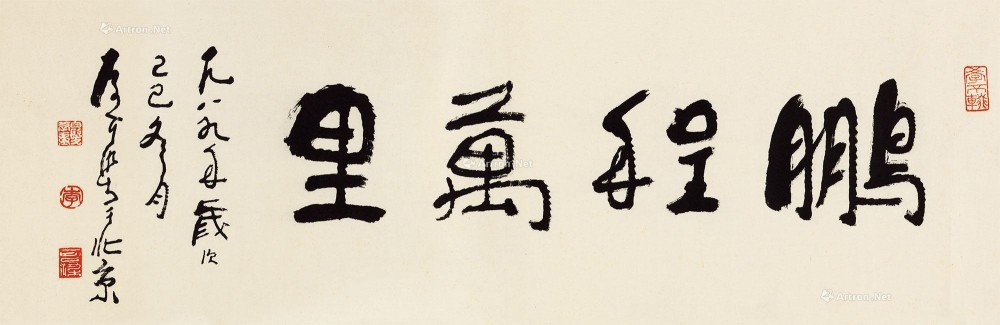 鵬程萬里
一九八九年歲次
己巳冬月
于北京
Artron.Net
Artron.Net
Artron.Net